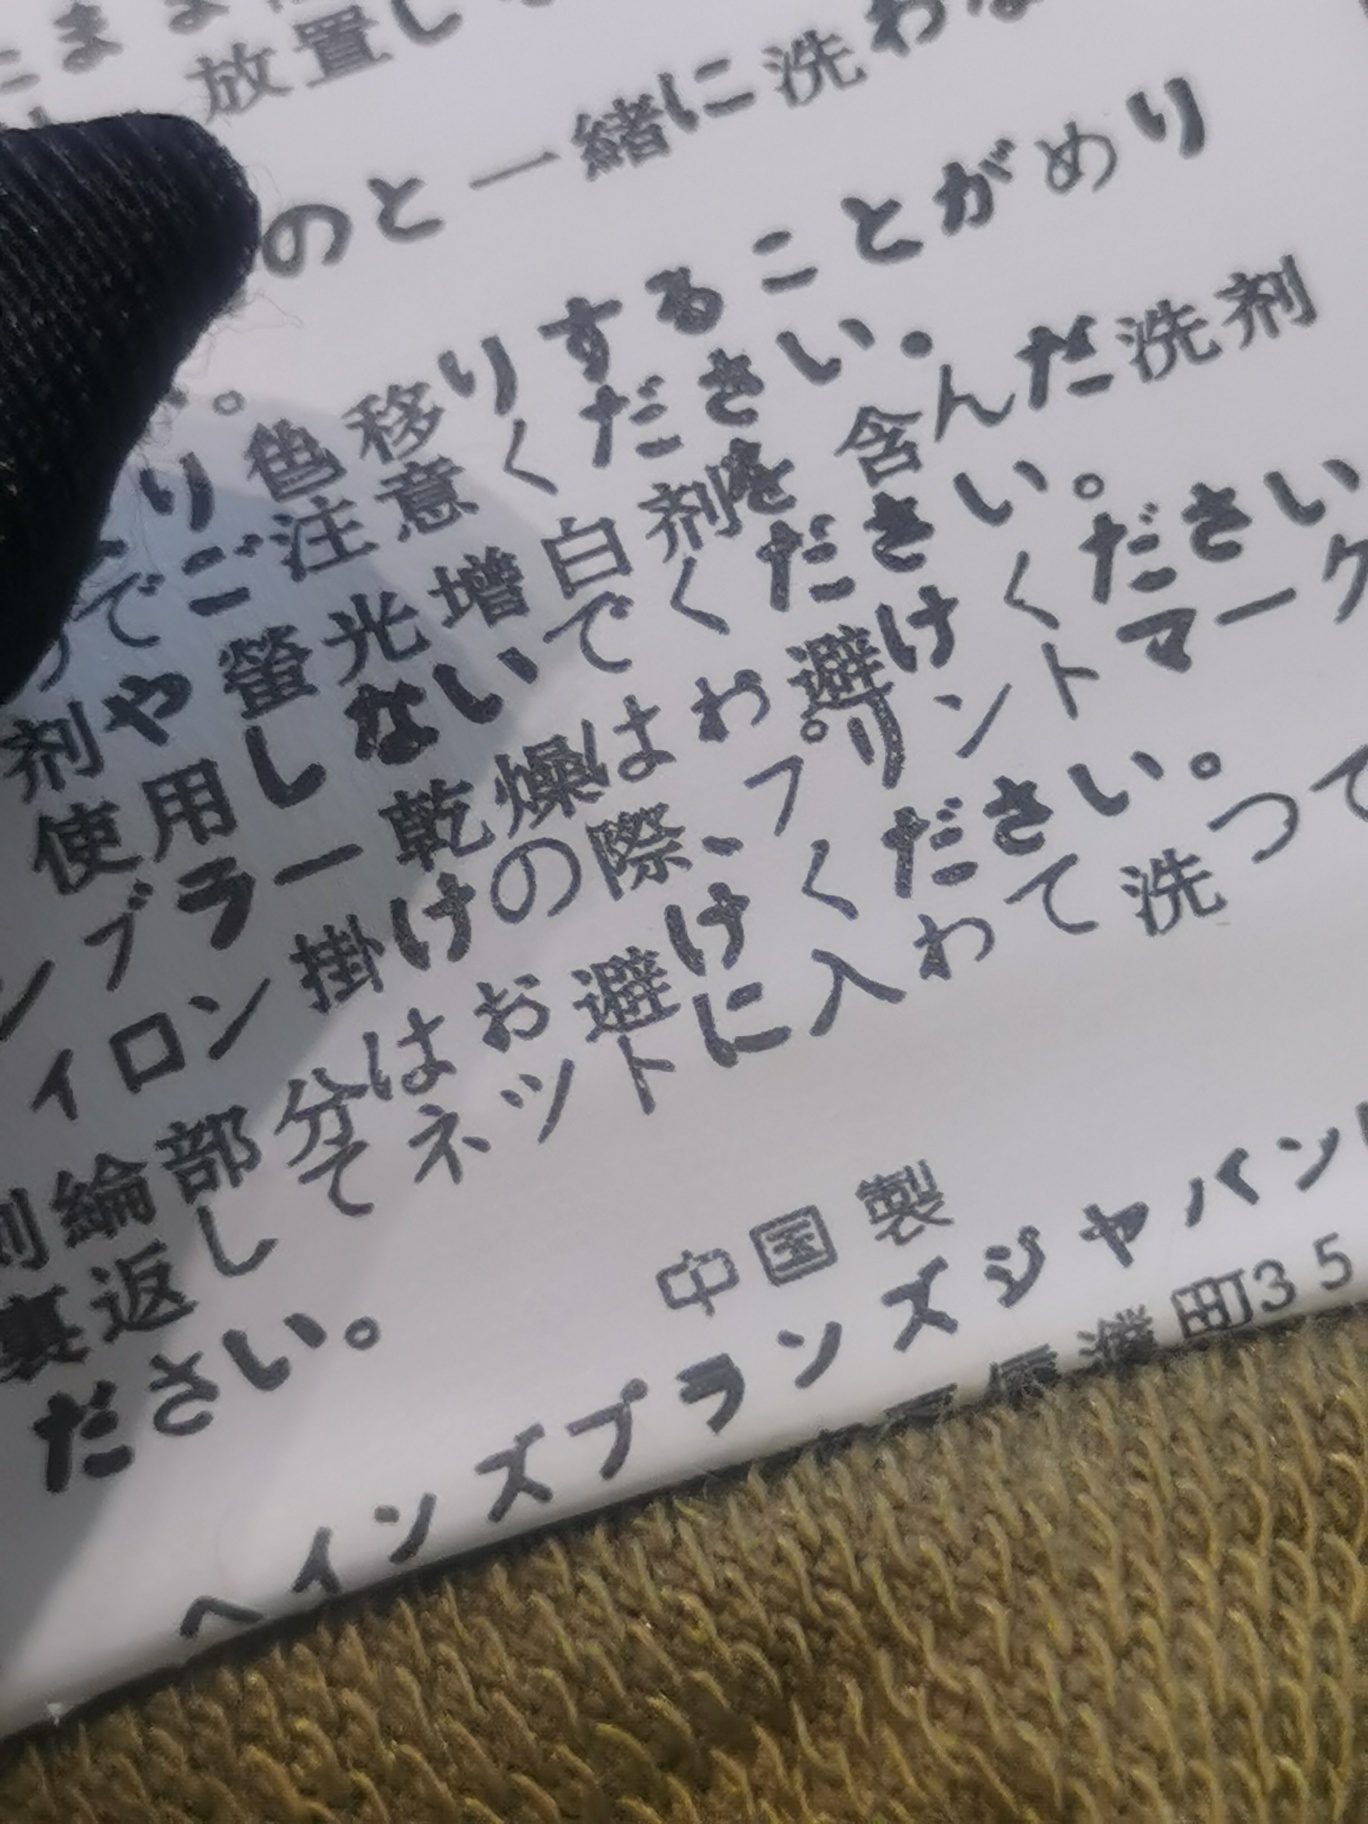 まま
放置し
のと一緒に洗わな
。
り色移りすることがめり
でご注意ください.
剤や螢光増白剤を含んだ洗剤
使用しないでください。
ンブラー乾燥はわ避けください
ィロン掛けの際、プリントマーク
綸部分はお避けください。
裏返してネットに入わて洗って
ださい。
中国製
ヘインズブランズジャパン
町35